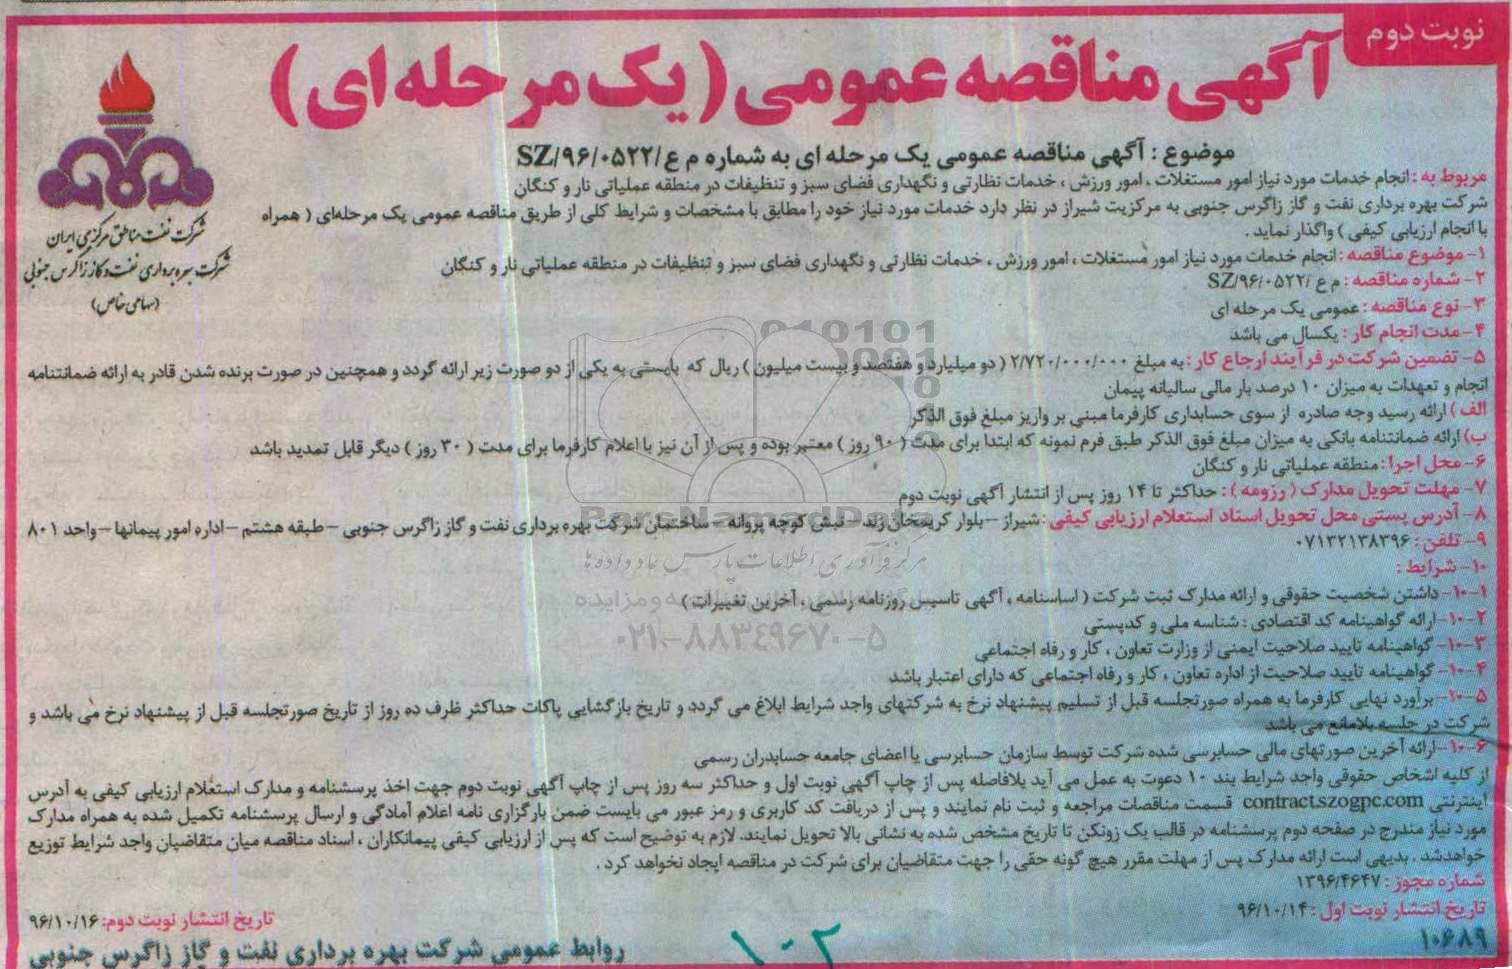 نوبت دوم
آگهی مناقصه عمومی (یک مرحله ای)
شرکت نفت مناطق مرکزی ایران
شرکت بهره برداری نفت و گاز زاگرس جنوبی
(سهامی خاص)
موضوع : آگهی مناقصه عمومی یک مرحله ای به شماره م ع/SZ/۹۶/۰۵۲۲
مربوط به : انجام خدمات مورد نیاز امور مستغلات ، امور ورزش ، خدمات نظارتی و نگهداری فضای سبز و تنظیفات در منطقه عملیاتی نار و کنگان
شرکت بهره برداری نفت و گاز زاگرس جنوبی به مرکزیت شیراز در نظر دارد خدمات مورد نیاز خود را مطابق با مشخصات و شرایط کلی از طریق مناقصه عمومی یک مرحله‌ای ( همراه
با انجام ارزیابی کیفی ) واگذار نماید .
۱- موضوع مناقصه : انجام خدمات مورد نیاز امور مستغلات ، امور ورزش ، خدمات نظارتی و نگهداری فضای سبز و تنظیفات در منطقه عملیاتی نار و کنگان
۲- شماره مناقصه : م ع /SZ/۹۶/۰۵۲۲
۳- نوع مناقصه : عمومی یک مرحله ای
۴- مدت انجام کار : یکسال می باشد
۵- تضمین شرکت در فرآیند ارجاع کار : به مبلغ ۲/۷۲۰/۰۰۰/۰۰۰ ( دو میلیارد و هفتصد و بیست میلیون ) ریال که بایستی به یکی از دو صورت زیر ارائه گردد و همچنین در صورت برنده شدن قادر به ارائه ضمانتنامه
انجام و تعهدات به میزان ۱۰ درصد بار مالی سالیانه پیمان
الف ) ارائه رسید وجه صادره از سوی حسابداری کارفرما مبنی بر واریز مبلغ فوق الذکر
ب) ارائه ضمانتنامه بانکی به میزان مبلغ فوق الذکر طبق فرم نمونه که ابتدا برای مدت ( ۹۰ روز ) معتبر بوده و پس از آن نیز با اعلام کارفرما برای مدت ( ۳۰ روز ) دیگر قابل تمدید باشد
۶- محل اجرا : منطقه عملیاتی نار و کنگان
۷- مهلت تحویل مدارک ( رزومه ) : حداکثر تا ۱۴ روز پس از انتشار آگهی نوبت دوم
۸- آدرس پستی محل تحویل اسناد استعلام ارزیابی کیفی : شیراز – بلوار کریمخان زند – نبش کوچه پروانه – ساختمان شرکت بهره برداری نفت و گاز زاگرس جنوبی – طبقه هشتم – اداره امور پیمانها – واحد ۸۰۱
۹- تلفن : ۰۷۱۳۲۱۳۸۳۹۶
۱۰- شرایط :
۱-۱۰- داشتن شخصیت حقوقی و ارائه مدارک ثبت شرکت ( اساسنامه ، آگهی تاسیس روزنامه رسمی ، آخرین تغییرات )
۲-۱۰- ارائه گواهینامه کد اقتصادی : شناسه ملی و کدپستی
۳-۱۰- گواهینامه تایید صلاحیت ایمنی از وزارت تعاون ، کار و رفاه اجتماعی
۴-۱۰- گواهینامه تایید صلاحیت از اداره تعاون ، کار و رفاه اجتماعی که دارای اعتبار باشد
۵-۱۰- برآورد نهایی کارفرما به همراه صورتجلسه قبل از تسلیم پیشنهاد نرخ به شرکتهای واجد شرایط ابلاغ می گردد و تاریخ بازگشایی پاکات حداکثر ظرف ده روز از تاریخ صورتجلسه قبل از پیشنهاد نرخ می باشد و
شرکت در جلسه بلامانع می باشد
۶-۱۰- ارائه آخرین صورتهای مالی حسابرسی شده شرکت توسط سازمان حسابرسی یا اعضای جامعه حسابدران رسمی
از کلیه اشخاص حقوقی واجد شرایط بند ۱۰ دعوت به عمل می آید بلافاصله پس از چاپ آگهی نوبت اول و حداکثر سه روز پس از چاپ آگهی نوبت دوم جهت اخذ پرسشنامه و مدارک استعلام ارزیابی کیفی به آدرس
اینترنتی contract.szogpc.com قسمت مناقصات مراجعه و ثبت نام نمایند و پس از دریافت کد کاربری و رمز عبور می بایست ضمن بارگزاری نامه اعلام آمادگی و ارسال پرسشنامه تکمیل شده به همراه مدارک
مورد نیاز مندرج در صفحه دوم پرسشنامه در قالب یک زونکن تا تاریخ مشخص شده به نشانی بالا تحویل نمایند. لازم به توضیح است که پس از ارزیابی کیفی پیمانکاران ، اسناد مناقصه میان متقاضیان واجد شرایط توزیع
خواهدشد . بدیهی است ارائه مدارک پس از مهلت مقرر هیچ گونه حقی را جهت متقاضیان برای شرکت در مناقصه ایجاد نخواهد کرد .
شماره مجوز : ۱۳۹۶/۴۶۴۷
تاریخ انتشار نوبت اول : ۹۶/۱۰/۱۴
تاریخ انتشار نوبت دوم: ۹۶/۱۰/۱۶
۱۰۶۸۹
روابط عمومی شرکت بهره برداری نفت و گاز زاگرس جنوبی
۱۰۲
ParsNamadData
مرکز فرآوری اطلاعات پارس نماد داده ها
۰۲۱-۸۸۳۴۹۶۷۰-۵